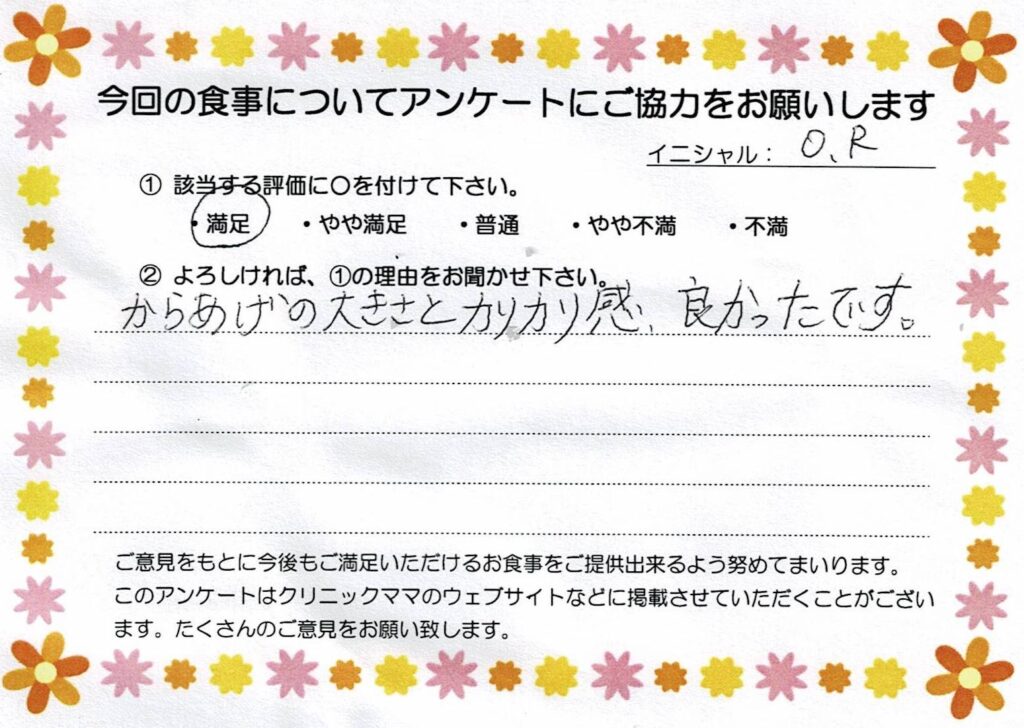 今回の食事についてアンケートにご協力をお願いします
イニシャル： O、R
① 該当する評価に〇を付けて下さい。
・満足 ・やや満足 ・普通 ・やや不満 ・不満
② よろしければ、①の理由をお聞かせ下さい。
からあげの大きさとカリカリ感、良かったです。
ご意見をもとに今後もご満足いただけるお食事をご提供出来るよう努めてまいります。
このアンケートはクリニックママのウェブサイトなどに掲載させていただくことがござい
ます。たくさんのご意見をお願い致します。